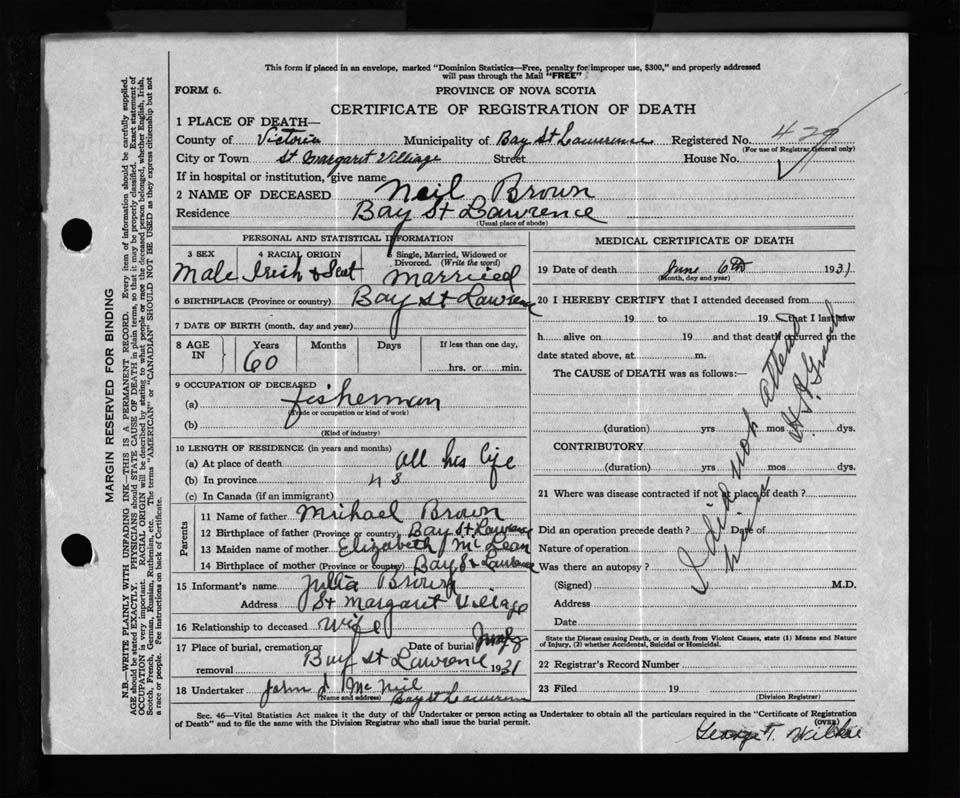 This form if placed in an envelope, marked "Dominion Statistics—Free, penalty for improper use, $300," and properly addressed
will pass through the Mail "FREE"
FORM 6.
PROVINCE OF NOVA SCOTIA
CERTIFICATE OF REGISTRATION OF DEATH
1 PLACE OF DEATH—
County of Victoria Municipality of Bay St Lawrence Registered No. 429
(For use of Registrar General only)
City or Town St Margaret Village Street House No.
If in hospital or institution, give name
2 NAME OF DECEASED Neil Brown
Residence Bay St Lawrence
(Usual place of abode)
PERSONAL AND STATISTICAL INFORMATION
3 SEX Male
4 RACIAL ORIGIN Irish & Scot
5 Single, Married, Widowed or Divorced. (Write the word) Married
6 BIRTHPLACE (Province or country) Bay St Lawrence
7 DATE OF BIRTH (month, day and year)
8 AGE IN Years 60 Months Days If less than one day, hrs. or min.
9 OCCUPATION OF DECEASED
(a) fisherman
(Trade or occupation or kind of work)
(b)
(Kind of industry)
10 LENGTH OF RESIDENCE (in years and months)
(a) At place of death all his life
(b) In province
(c) In Canada (if an immigrant)
Parents
11 Name of father Michael Brown
12 Birthplace of father (Province or country) Bay St Lawrence
13 Maiden name of mother Elizabeth McLean
14 Birthplace of mother (Province or country) Bay St Lawrence
15 Informant's name Julia Brown
Address St Margaret Village
16 Relationship to deceased Wife
17 Place of burial, cremation or removal Bay St Lawrence Date of burial 1931
18 Undertaker John J McNeil
(Name and address) Bay St Lawrence
MEDICAL CERTIFICATE OF DEATH
19 Date of death June 6th 1931
(Month, day and year)
20 I HEREBY CERTIFY that I attended deceased from
19 to 19 that I last saw
h alive on 19 and that death occurred on the
date stated above, at m.
The CAUSE of DEATH was as follows:—
(duration) yrs mos dys.
CONTRIBUTORY
(duration) yrs mos dys.
I did not attend
him
21 Where was disease contracted if not at place of death?
Did an operation precede death? Date of
Nature of operation
Was there an autopsy?
(Signed) M.D.
Address
Date
State the Disease causing Death, or in death from Violent Causes, state (1) Means and Nature
of Injury, (2) whether Accidental, Suicidal or Homicidal.
22 Registrar's Record Number
23 Filed 19
(Division Registrar)
Sec. 46—Vital Statistics Act makes it the duty of the Undertaker or person acting as Undertaker to obtain all the particulars required in the "Certificate of Registration
of Death" and to file the same with the Division Registrar who shall issue the burial permit.
(OVER)
George T. Wilkie
MARGIN RESERVED FOR BINDING
N.B.—WRITE PLAINLY WITH UNFADING INK—THIS IS A PERMANENT RECORD. Every item of information should be carefully supplied.
AGE should be stated EXACTLY. PHYSICIANS should STATE CAUSE OF DEATH in plain terms, so that it may be properly classified. Exact statement of
OCCUPATION is very important. RACIAL ORIGIN will be described by stating to what people or race the deceased person belonged, whether English, Irish,
Scotch, French, German, Russian, Ruthenian, etc. The terms "AMERICAN" or "CANADIAN" SHOULD NOT BE USED as they express citizenship but not
a race or people. See instructions on back of Certificate.